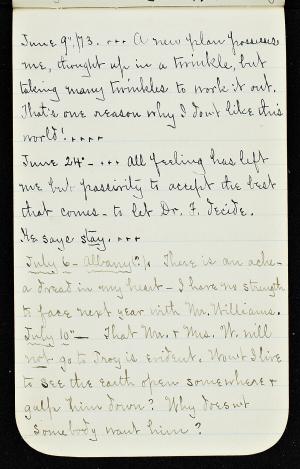 June 9", 73. ... A new plan possesses
me, thought up in a twinkle, but
taking many twinkles to work it out.
That's one reason why I don't like this
world! ....
June 24" - ... All feeling has left
me but passivity to accept the best
that comes - to let Dr. F. decide.
He says stay. ...
July 6 - Albany There is an ache -
a dread in my heart - I have no strength
to face next year with Mr. Williams.
July 10" - That Mr. & Mrs. W. will
not go to Troy is evident. Won't I live
to see the earth open somewhere &
gulp him down? Why doesn't
somebody want him?